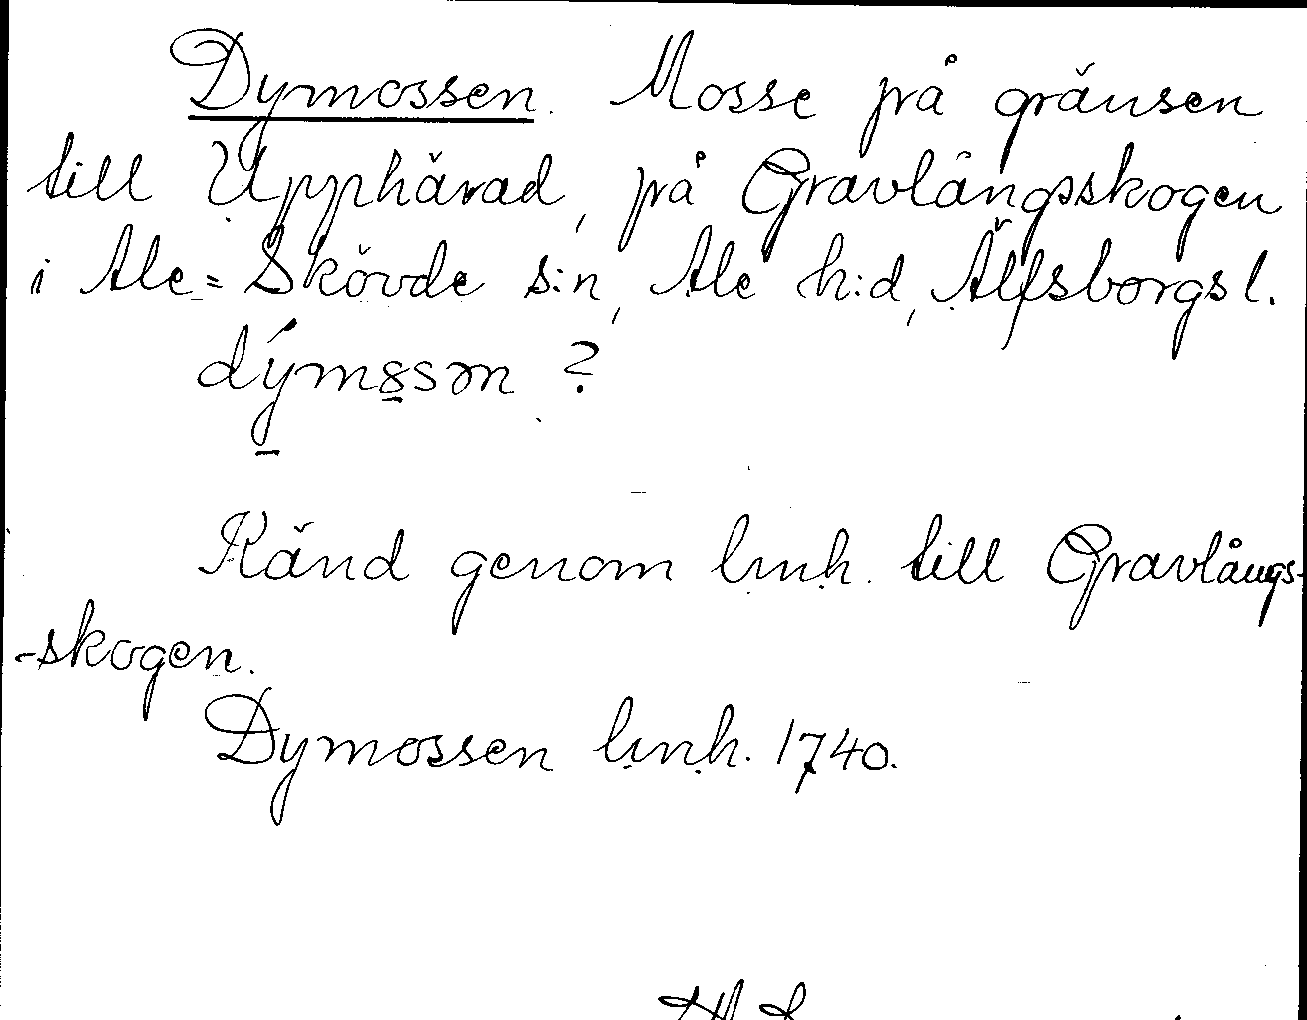 Dymossen. Mosse på gränsen
till Upphärad, på Gravlångsskogen
i Ale-Skövde s:n, Ale h:d, Älfsborgs l.
dýmssən ?
Känd genom lmh. till Gravlångs-
-skogen.
Dymossen lmh. 1740.